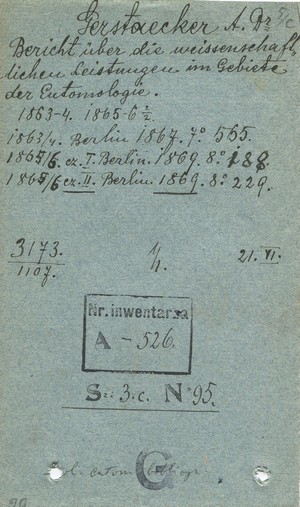 Gerstaecker A. Dr
Bericht über die weissenschaft-
lichen Leistungen im Gebiete
der Entomologie.
1863-4. 1865-6 1/2
1863/4. Berlin 1867. 7° 565.
1865/6 cz. I. Berlin. 1869. 8° 188
1865/6 cz. II. Berlin. 1869. 8° 229.
3173.
1107.
21. VI.
Nr. inwentarza
A - 526.
Sz: 3.c. N° 95.
G